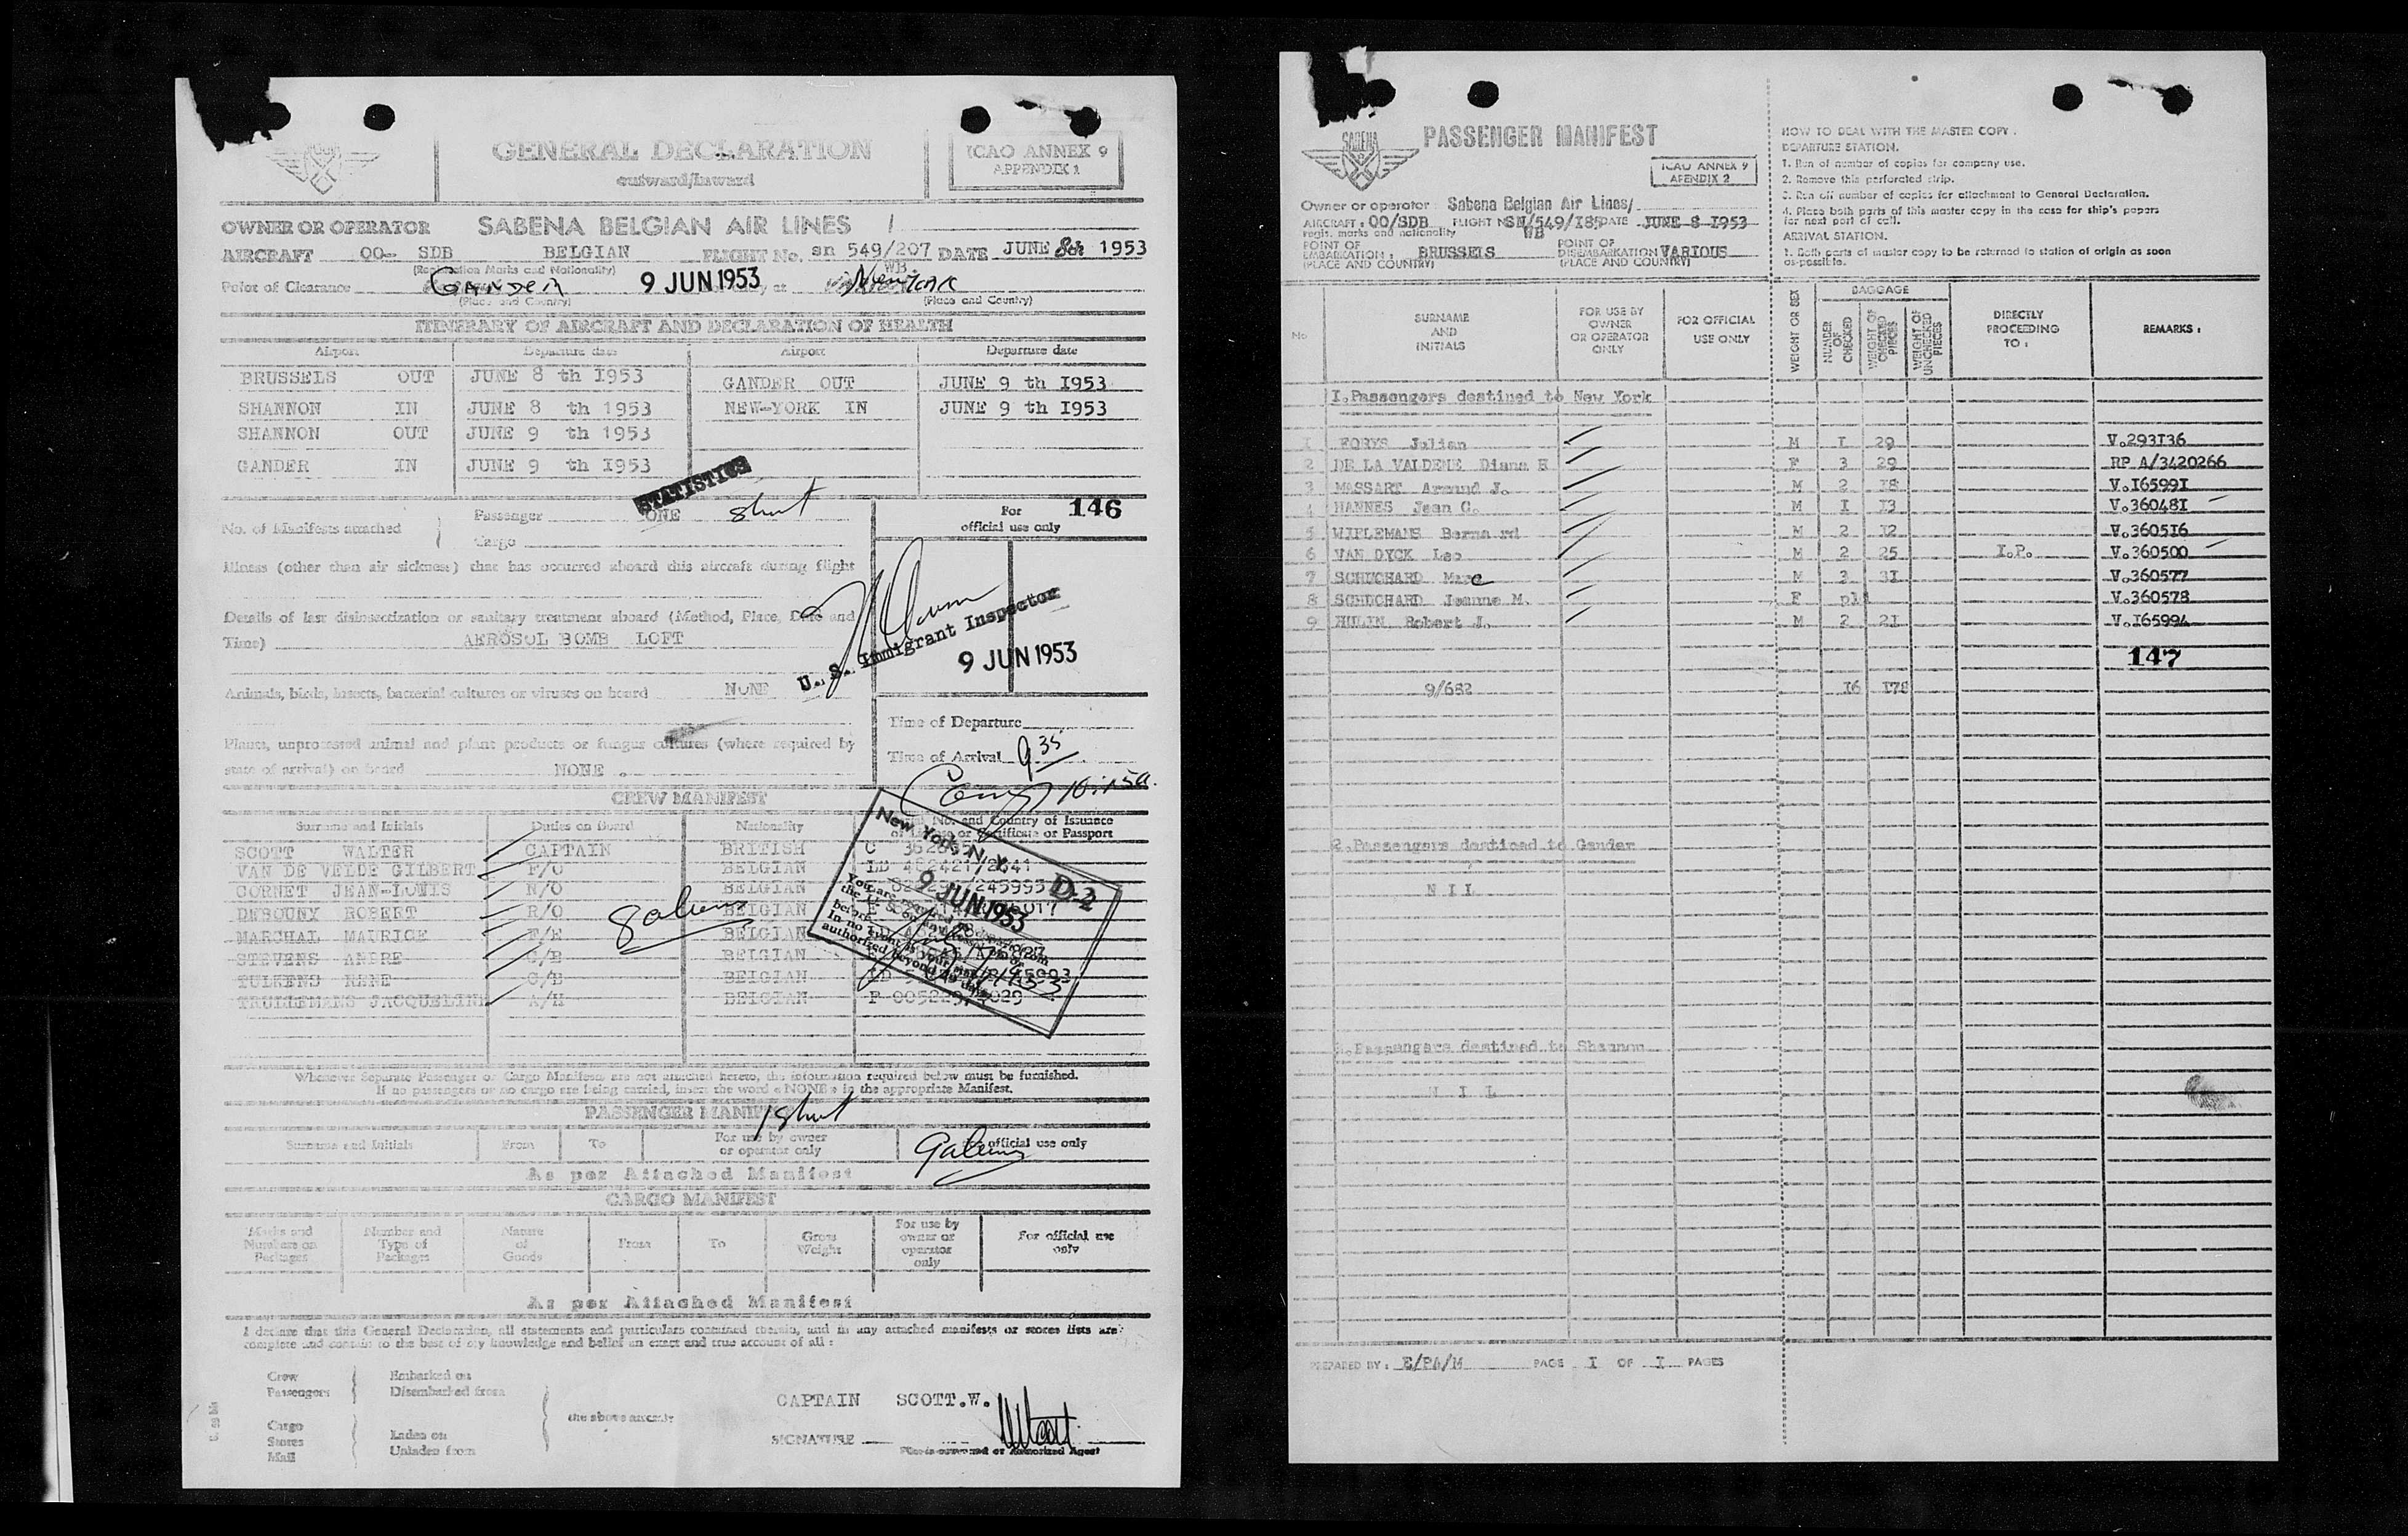 GENERAL DECLARATION
outward/Inward
ICAO ANNEX 9
APPENDIX 1
OWNER OR OPERATOR SABENA BELGIAN AIR LINES /
AIRCRAFT OO- SDB BELGIAN FLIGHT No. sn 549/207 DATE JUNE 8th 1953
(Registration Marks and Nationality) WB
Point of Clearance GANDER 9 JUN 1953 at New York
(Place and Country) (Place and Country)
ITINERARY OF AIRCRAFT AND DECLARATION OF HEALTH
Airport Departure date Airport Departure date
BRUSSELS OUT JUNE 8 th I953 GANDER OUT JUNE 9 th I953
SHANNON IN JUNE 8 th 1953 NEW-YORK IN JUNE 9 th I953
SHANNON OUT JUNE 9 th 1953
GANDER IN JUNE 9 th I953
STATISTICS
No. of Manifests attached
Passenger ONE sheet
Cargo
For official use only 146
Illness (other than air sickness) that has occurred aboard this aircraft during flight
Details of last disinsectization or sanitary treatment aboard (Method, Place, Date and
Time) AEROSOL BOMB LOFT
U. S. Immigrant Inspector
9 JUN 1953
Animals, birds, insects, bacterial cultures or viruses on board NONE
Plants, unprocessed animal and plant products or fungus cultures (where required by
state of arrival) on board NONE .
Time of Departure
Time of Arrival 9 35
CREW MANIFEST
Surname and Initials Duties on Board Nationality No. and Country of Issuance
of License or Certificate or Passport
SCOTT WALTER CAPTAIN BRITISH
VAN DE VELDE GILBERT F/O BELGIAN
CORNET JEAN-LOUIS N/O BELGIAN
DEBOUNY ROBERT R/O BELGIAN
MARCHAL MAURICE F/E BELGIAN
STEVENS ANDRE C/B BELGIAN
TULKENS RENE C/B BELGIAN
TRULLEMANS JACQUELINE A/H BELGIAN
New York, N. Y.
9 JUN 1953 D-2
Whenever Separate Passenger or Cargo Manifests are not attached hereto, the information required below must be furnished.
If no passengers or no cargo are being carried, insert the word « NONE » in the appropriate Manifest.
PASSENGER MANIFEST
1 sheet
Surname and Initials From To For use by owner or operator only For official use only
As per Attached Manifest
CARGO MANIFEST
Marks and Numbers on Packages Number and Type of Packages Nature of Goods From To Gross Weight For use by owner or operator only For official use only
As per Attached Manifest
I declare that this General Declaration, all statements and particulars contained therein, and in any attached manifests or stores lists are
complete and contain to the best of my knowledge and belief an exact and true account of all :
Crew
Passengers
Embarked on
Disembarked from
Cargo
Stores
Mail
Laden on
Unladen from
the above aircraft
CAPTAIN SCOTT.W.
SIGNATURE
Pilot-in-command or Authorized Agent
SABENA
PASSENGER MANIFEST
ICAO ANNEX 9
APENDIX 2
Owner or operator : Sabena Belgian Air Lines/
AIRCRAFT : OO/SDB FLIGHT N SN/549/I8 DATE JUNE 8 I953
regis. marks and nationality WB
POINT OF EMBARKATION : BRUSSELS POINT OF DISEMBARKATION VARIOUS
(PLACE AND COUNTRY) (PLACE AND COUNTRY)
HOW TO DEAL WITH THE MASTER COPY .
DEPARTURE STATION.
1. Run of number of copies for company use.
2. Remove this perforated strip.
3. Run off number of copies for attachment to General Declaration.
4. Place both parts of this master copy in the case for ship's papers
for next port of call.
ARRIVAL STATION.
1. Both parts of master copy to be returned to station of origin as soon
as possible.
No SURNAME AND INITIALS FOR USE BY OWNER OR OPERATOR ONLY FOR OFFICIAL USE ONLY WEIGHT OR SEX BAGGAGE NUMBER OF CHECKED WEIGHT OF CHECKED PIECES WEIGHT OF UNCHECKED PIECES DIRECTLY PROCEEDING TO : REMARKS :
I.Passengers destined to New York
1 FORYS Julian M I 29 V.293I36
2 DE LA VALDENE Diana F 3 29 RP A/3420266
3 MASSART Armand J. M 2 I8 V.I6599I
4 HANNES Jean C. M I I3 V.36048I
5 WIFLEMANS Bernard M 2 I2 V.3605I6
6 VAN DYCK Leo M 2 25 I.P. V.360500
7 SCHUCHARD Marc M 3 3I V.360577
8 SCHUCHARD Jeanne M. F pl V.360578
9 HULIN Robert J. M 2 2I V.I65994
147
9/682 I6 I78
2.Passengers destined to Gander
N I L
3.Passengers destined to Shannon
N I L
PREPARED BY : E/PA/M PAGE I OF I PAGES